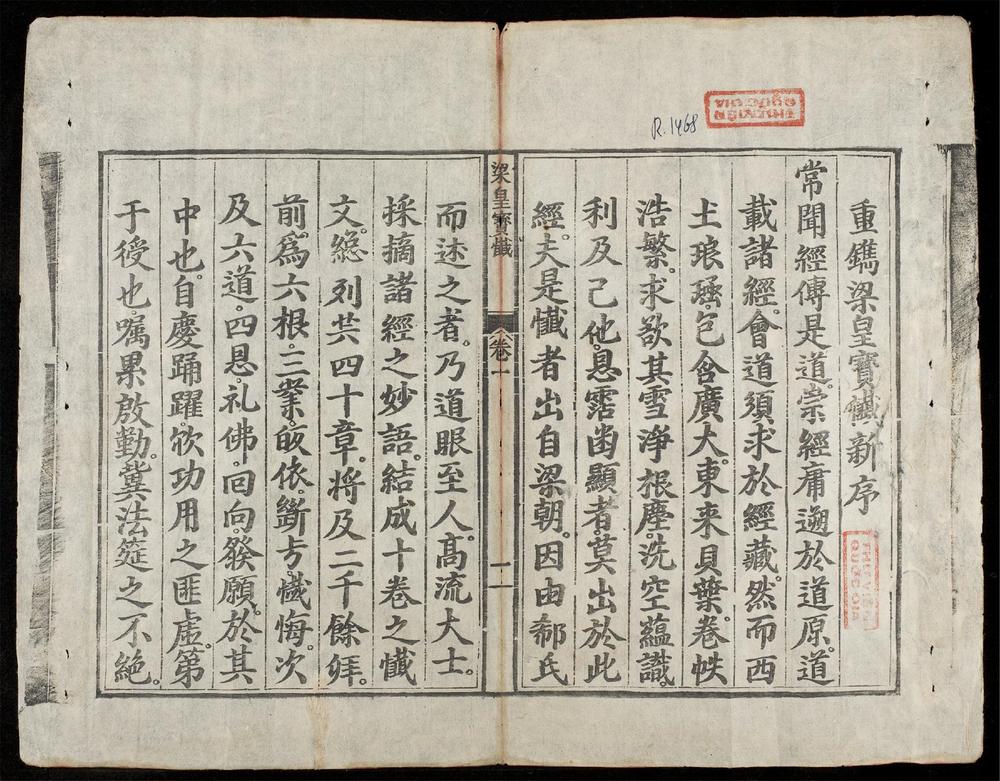 重鐫梁皇寶懺新序
常聞經傳是道。崇經庸遡於道原。道
載諸經。會道須求於經藏。然而西
土琅璚。包含廣大。東来貝葉。卷帙
浩繁。求欲其雪淨根塵。洗空蘊識。
利及己他。恩霑幽顯者。莫出於此
經。夫是懺者出自梁朝。因由郗氏
梁皇寶懺
卷一
一
而述之者。乃道眼至人。高流大士。
採摘諸經之妙語。結成十卷之懺
文。總列共四十章。將及二千餘拜。
前為六根。三業。皈依。斷疑。懺悔。次
及六道。四恩。礼佛。回向。發願。於其
中也。自慶踊躍。欣功用之匪虛。第
于授也。囑累啟勤。冀法筵之不絕。
R.1468
THƯ VIỆN
QUỐC GIA
THƯ VIỆN
QUỐC GIA